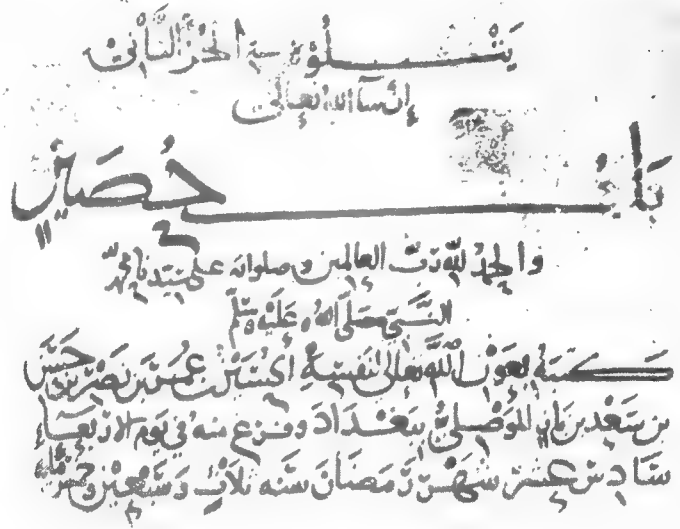 يتلوه في الجزء الثاني
إن شا الله تعالى
باب حُصَين
والحمد لله رب العالمين وصلواته على سيدنا محمد
النبي صلى الله عليه وسلم
كتبه بعون الله تعالى لنفسه الحسين بن عمر بن نصر بن حسن
بن سعد بن باز الموصلي ببغداد وفرغ منه في يوم الاربعاء
سادس عشر شهر رمضان سنه ثلاث وسبعين وخمس مائه